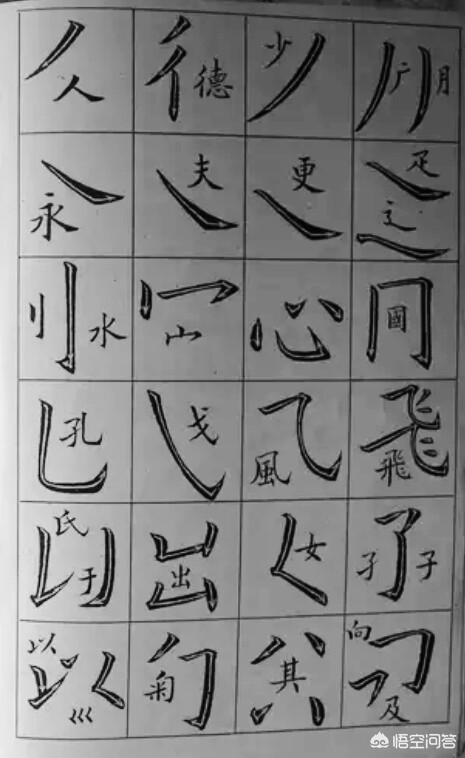 人 德 少 广 月
永 夫 更 疋 辶
刂 水 山 心 國
孔 戈 風 飛
氏 于 出 女 孑 子
以 巛 菊 其 向 及
悟空问答